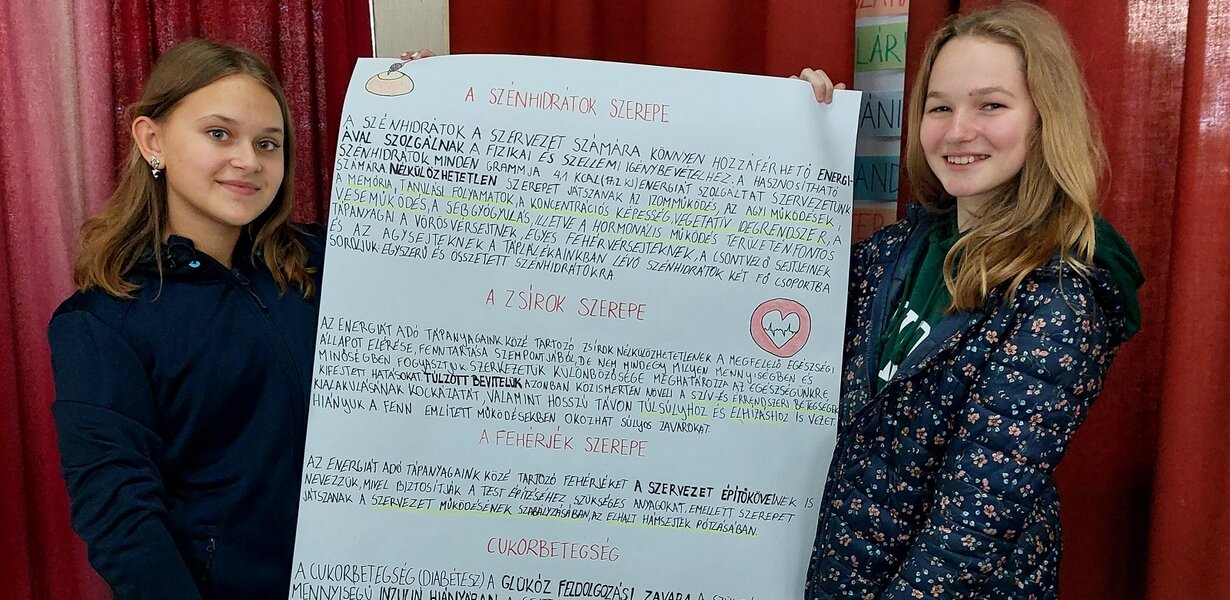 A SZÉNHIDRÁTOK SZEREPE
A SZÉNHIDRÁTOK A SZERVEZET SZÁMÁRA KÖNNYEN HOZZÁFÉRHETŐ ENERGI-
ÁVAL SZOLGÁLNAK A FIZIKAI ÉS SZELLEMI IGÉNYBEVÉTELHEZ. A HASZNOSÍTHATÓ
SZÉNHIDRÁTOK MINDEN GRAMMJA 4,1 KCAL (17,2 KJ) ENERGIÁT SZOLGÁLTAT SZERVEZETÜNK
SZÁMÁRA. NÉLKÜLÖZHETETLEN SZEREPET JÁTSZANAK AZ IZOMMŰKÖDÉS, AZ AGYI MŰKÖDÉSEK,
A MEMÓRIA, TANULÁSI FOLYAMATOK, A KONCENTRÁCIÓS KÉPESSÉG, VEGETATÍV IDEGRENDSZER, A
VESEMŰKÖDÉS, A SEBGYÓGYULÁS, ILLETVE A HORMONÁLIS MŰKÖDÉS TERÜLETÉN. FONTOS
TÁPANYAGAI A VÖRÖSVÉRSEJTNEK, EGYES FEHÉRVÉRSEJTEKNEK, A CSONTVELŐ SEJTJEINEK
ÉS AZ AGYSEJTEKNEK. A TÁPLÁLÉKAINKBAN LÉVŐ SZÉNHIDRÁTOK KÉT FŐ CSOPORTBA
SOROLJUK: EGYSZERŰ ÉS ÖSSZETETT SZÉNHIDRÁTOKRA.
A ZSÍROK SZEREPE
AZ ENERGIÁT ADÓ TÁPANYAGAINK KÖZÉ TARTOZÓ ZSÍROK NÉLKÜLÖZHETETLENEK A MEGFELELŐ EGÉSZSÉGI
ÁLLAPOT ELÉRÉSE, FENNTARTÁSA SZEMPONTJÁBÓL, DE NEM MINDEGY MILYEN MENNYISÉGBEN ÉS
MINŐSÉGBEN FOGYASZTJUK. SZERVEZETÜK KÜLÖNBÖZŐSÉGE MEGHATÁROZZA AZ EGÉSZSÉGÜNKRE
KIFEJTETT HATÁSOKAT. TÚLZOTT BEVITELÜK AZONBAN KÖZISMERTEN NÖVELI A SZÍV- ÉS ÉRRENDSZERI BETEGSÉGEK
KIALAKULÁSÁNAK KOCKÁZATÁT, VALAMINT HOSSZÚ TÁVON TÚLSÚLYHOZ ÉS ELHÍZÁSHOZ IS VEZET.
HIÁNYUK A FENN EMLÍTETT MŰKÖDÉSEKBEN OKOZHAT SÚLYOS ZAVAROKAT.
A FEHÉRJÉK SZEREPE
AZ ENERGIÁT ADÓ TÁPANYAGAINK KÖZÉ TARTOZÓ FEHÉRJÉKET A SZERVEZET ÉPÍTŐKÖVEINEK IS
NEVEZZÜK, MIVEL BIZTOSÍTJÁK A TEST ÉPÍTÉSÉHEZ SZÜKSÉGES ANYAGOKAT, EMELLETT SZEREPET
JÁTSZANAK A SZERVEZET MŰKÖDÉSÉNEK SZABÁLYZÁSÁBAN, AZ ELHALT HÁMSEJTEK PÓTLÁSÁBAN.
CUKORBETEGSÉG
A CUKORBETEGSÉG (DIABÉTESZ) A GLÜKÓZ FELDOLGOZÁSI ZAVARA
MENNYISÉGŰ INZULIN HIÁNYÁBAN